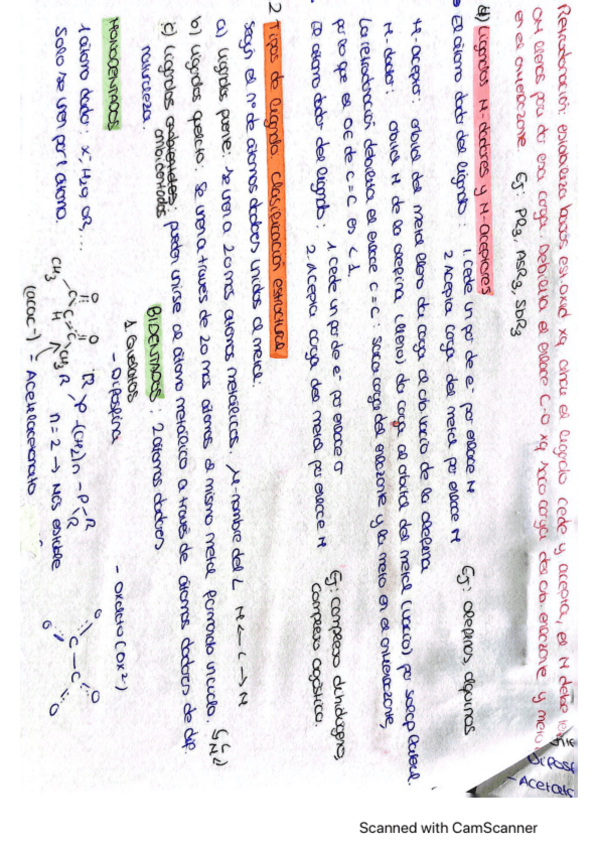 Retrodonación: estabiliza bajos est. oxid xq ahora el ligando cede y acepta, el M debe
OM llenos para dar esa carga. Debilita el enlace C-O xq saco carga del ob. enlazante y meto
en el antienlazante. Ej: PR3, AsR3, SbR3
d) Ligandos π-dadores y π-aceptores
El átomo dador del ligando: 1. Cede un par de e- por enlace π
2 Acepta carga del metal por enlace π
Ej: olefinas, alquinos
M-aceptor: orbital del metal lleno da carga al ob vacío de la olefina
M-dador: orbital π de la olefina (lleno) da carga al orbital del metal (vacío) por solap lateral.
La retrodonación debilita el enlace C=C: saco carga del enlazante y la meto en el antienlazante,
por lo que el OE de C=C es < 1.
El átomo dador del ligando: 1 cede un par de e- por enlace σ
2. Acepta carga del metal por enlace π
Ej: complejo dihidrógeno,
complejo agóstico.
2 Tipos de ligando. Clasificación estructural
Según el nº de átomos dadores unidos al metal:
a) Ligandos puente: se unen a 2 o más átomos metálicos. μ-nombre del L M ← L → M
b) Ligandos quelato: se unen a través de 2 o más átomos al mismo metal formando un ciclo.
c) Ligandos ambidentados: pueden unirse al átomo metálico a través de átomos dadores de dif.
naturaleza.
MONODENTADOS
1 átomo dador: X-, H2O, OR,...
Solo se unen por 1 átomo.
BIDENTADOS: 2 átomos dadores
1. Quelatos
- Difosfina
R
R P-(CH2)n-P R
R
n=2 → Más estable
CH3 C C C CH3
O O
H
(acac-) = Acetilacetonato
- Oxalato (ox2-)
O O
C-C
O O
Difosf
- Acetat
Scanned with CamScanner